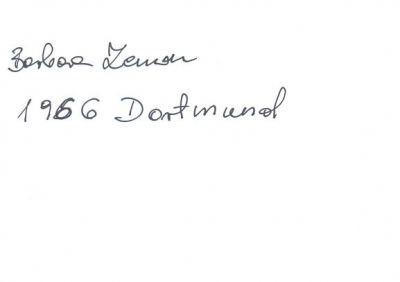 Barbara Zeman
1966 Dortmund